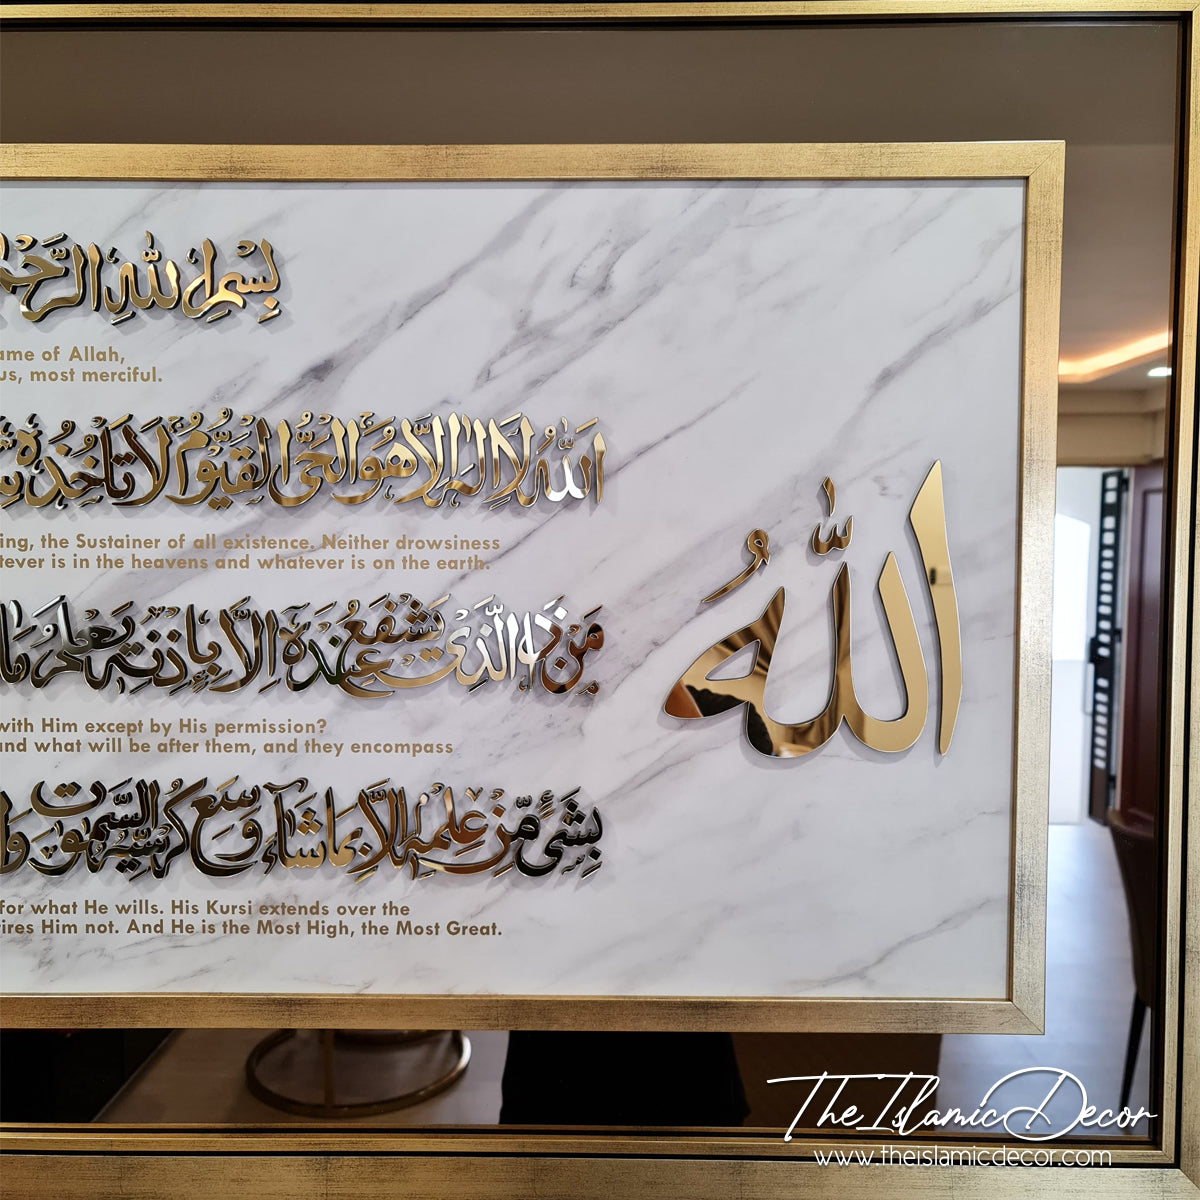 بِسْمِ اللهِ الرَّحْ
ame of Allah,
us, most merciful.
اَللّٰهُ لَا اِلٰهَ اِلَّا هُوَ الْحَيُّ الْقَيُّوْمُ لَا تَاْخُذُهٗ
ing, the Sustainer of all existence. Neither drowsiness
tever is in the heavens and whatever is on the earth.
مَنْ ذَا الَّذِيْ يَشْفَعُ عِنْدَهٗ اِلَّا بِاِذْنِهٖ يَعْلَمُ مَا
with Him except by His permission?
and what will be after them, and they encompass
بِشَيْءٍ مِّنْ عِلْمِهٖ اِلَّا بِمَا شَآءَ وَسِعَ كُرْسِيُّهُ السَّمٰوٰتِ
for what He wills. His Kursi extends over the
ires Him not. And He is the Most High, the Most Great.
اللّٰهُ
The Islamic Decor
www.theislamicdecor.com